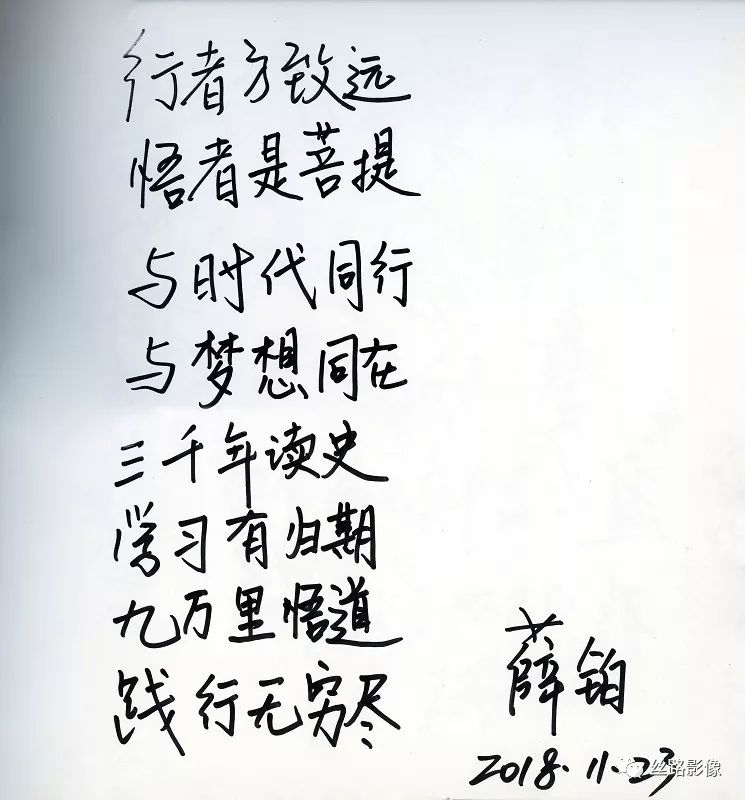 行者方致远
悟者是菩提
与时代同行
与梦想同在
三千年读史
学习有归期
九万里悟道
践行无穷尽
薛铂
2018.11.23
丝路影像